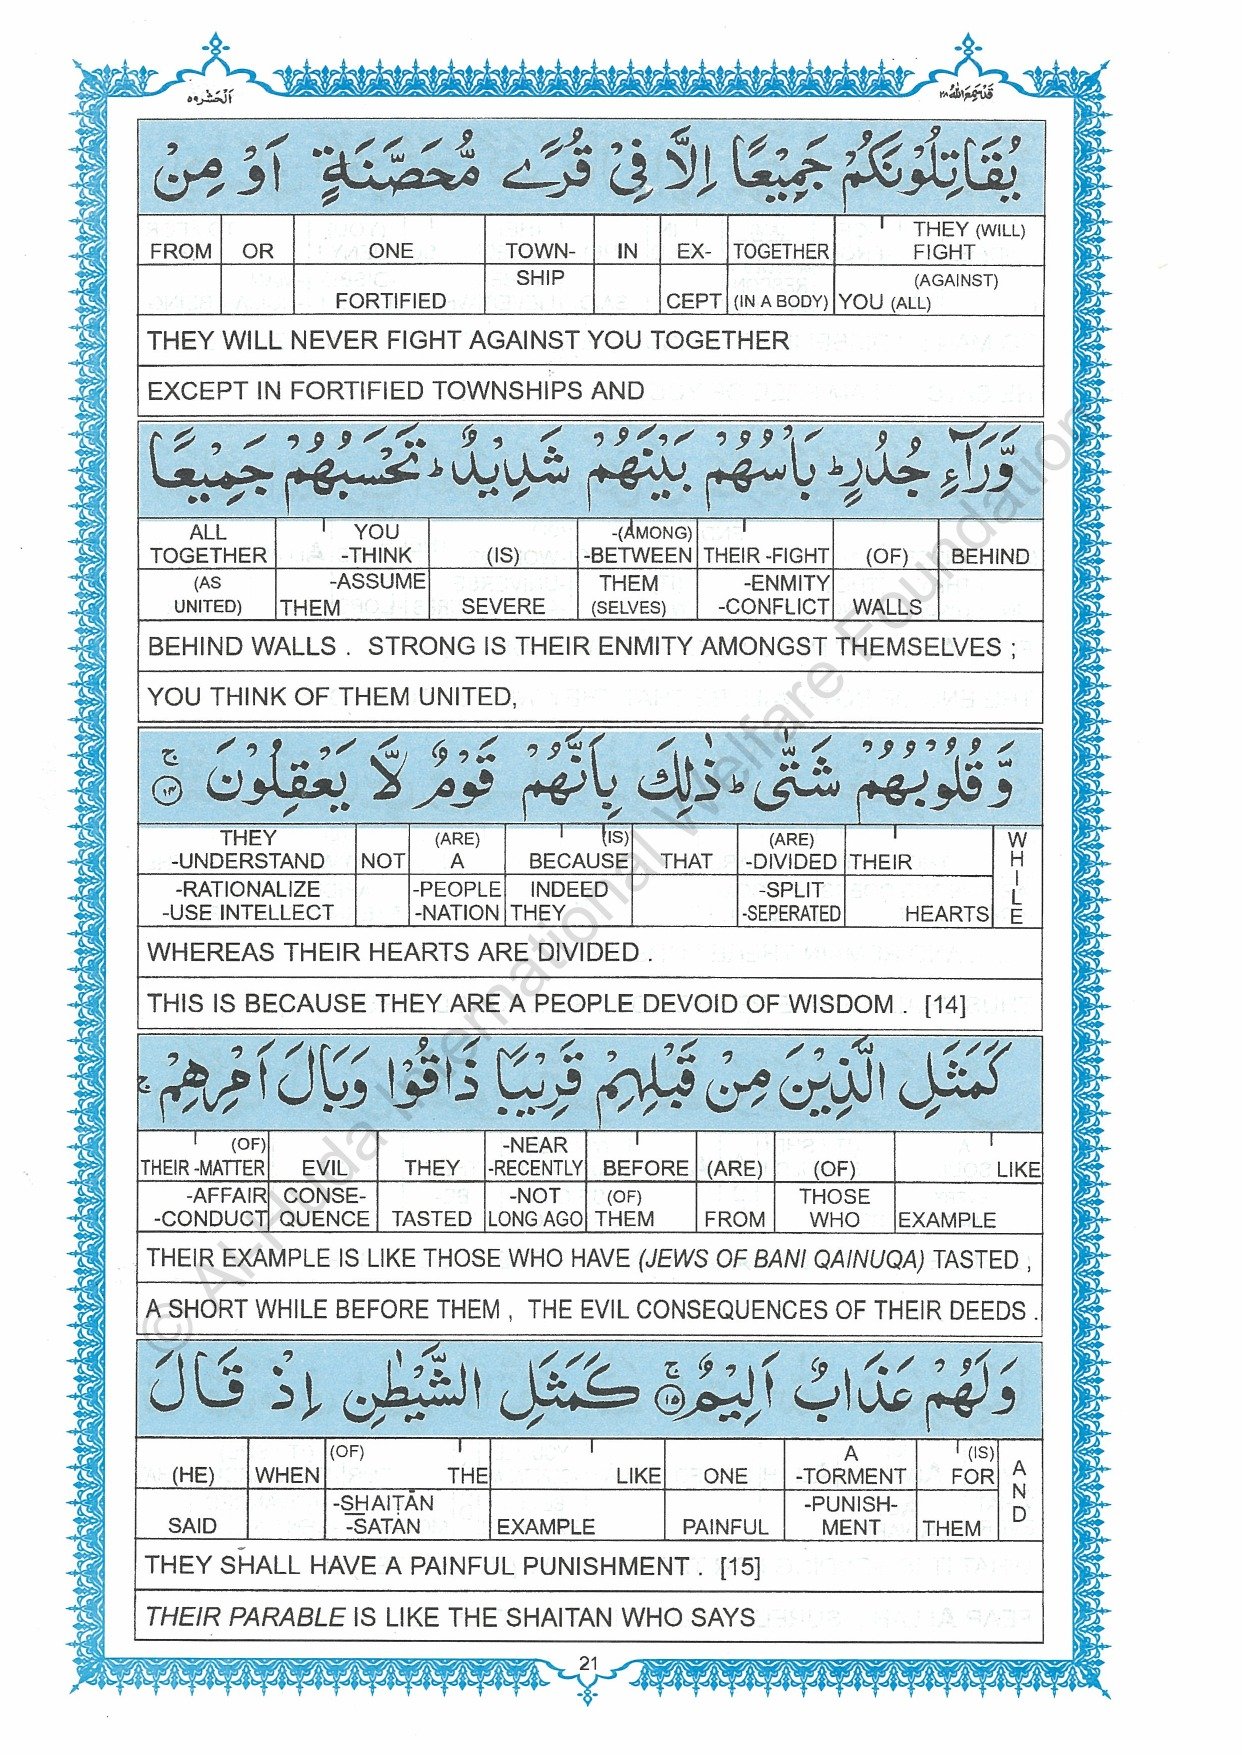 اَلْحَشْر ٥٩
قَدْ سَمِعَ اللّٰهُ ٢٨
يُقَاتِلُوْنَكُمْ جَمِيْعًا اِلَّا فِيْ قُرًى مُّحَصَّنَةٍ اَوْ مِنْ
FROM OR ONE TOWN- IN EX- TOGETHER THEY (WILL) FIGHT
FORTIFIED SHIP CEPT (IN A BODY) YOU (ALL) (AGAINST)
THEY WILL NEVER FIGHT AGAINST YOU TOGETHER
EXCEPT IN FORTIFIED TOWNSHIPS AND
وَّرَآءِ جُدُرٍ ؕ بَاْسُهُمْ بَيْنَهُمْ شَدِيْدٌ ؕ تَحْسَبُهُمْ جَمِيْعًا
ALL TOGETHER YOU -THINK (IS) -(AMONG) -BETWEEN THEIR -FIGHT (OF) BEHIND
(AS UNITED) -ASSUME THEM SEVERE THEM (SELVES) -ENMITY -CONFLICT WALLS
BEHIND WALLS . STRONG IS THEIR ENMITY AMONGST THEMSELVES ;
YOU THINK OF THEM UNITED,
وَّقُلُوْبُهُمْ شَتّٰى ؕ ذٰلِكَ بِاَنَّهُمْ قَوْمٌ لَّا يَعْقِلُوْنَ ۚ ١٤
THEY -UNDERSTAND NOT (ARE) A (IS) BECAUSE THAT (ARE) -DIVIDED THEIR WHILE
-RATIONALIZE -USE INTELLECT -PEOPLE -NATION INDEED THEY -SPLIT -SEPERATED HEARTS
WHEREAS THEIR HEARTS ARE DIVIDED .
THIS IS BECAUSE THEY ARE A PEOPLE DEVOID OF WISDOM . [14]
كَمَثَلِ الَّذِيْنَ مِنْ قَبْلِهِمْ قَرِيْبًا ذَاقُوْا وَبَالَ اَمْرِهِمْ ۚ
(OF) THEIR -MATTER EVIL THEY -NEAR -RECENTLY BEFORE (ARE) (OF) LIKE
-AFFAIR -CONDUCT CONSE- QUENCE TASTED -NOT LONG AGO (OF) THEM FROM THOSE WHO EXAMPLE
THEIR EXAMPLE IS LIKE THOSE WHO HAVE (JEWS OF BANI QAINUQA) TASTED ,
A SHORT WHILE BEFORE THEM , THE EVIL CONSEQUENCES OF THEIR DEEDS .
وَلَهُمْ عَذَابٌ اَلِيْمٌ ۚ ١٥ كَمَثَلِ الشَّيْطٰنِ اِذْ قَالَ
(HE) WHEN (OF) THE LIKE ONE A -TORMENT (IS) FOR AND
SAID -SHAIṬĀN -SATAN EXAMPLE PAINFUL -PUNISH- MENT THEM
THEY SHALL HAVE A PAINFUL PUNISHMENT . [15]
THEIR PARABLE IS LIKE THE SHAITAN WHO SAYS
21
© Al-Huda International Welfare Foundation